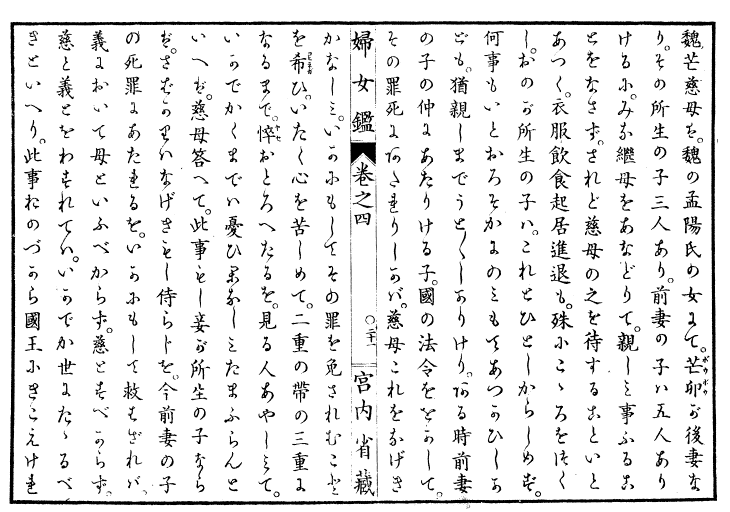 魏芒慈母は。魏の孟陽氏の女にて。芒卯が後妻な
り。その所生の子三人あり。前妻の子ハ五人あり
けるに。みな繼母をあなどりて。親しミ事ふるこ
とをなさず。されど慈母の之を待することいと
あつく。衣服飲食起居進退も。殊にこゝろをつく
し。おのが所生の子ハ。これとひとしからしめず。
何事もいとおろそかにのミもてあつかひしか
ども。猶親しまでうと〳〵しかりけり。ある時前妻
の子の仲にあたりける子。國の法令ををかして。
その罪死にあたれりしかバ。慈母これをなげき
婦女鑑 卷之四 ○二十一 宮内省藏
かなしミ。いかにもしてその罪を免されむこと
を希ひ。いたく心を苦しめて。二重の帶の三重に
なるまで。悴おとろへたるを。見る人あやしミて。
いかでかくまでハ憂ひかなしミたまふらんと
いへば。慈母答へて。此事もし妾が所生の子なら
ば。さばかりハなげきもし侍らじを。今前妻の子
の死罪にあたれるを。いかにもして救はざれバ。
義において母といふべからず。慈とすべからず。
慈と義とをわすれてハ。いかでか世にたゝるべ
きといへり。此事おのづから國王にきこえけれ